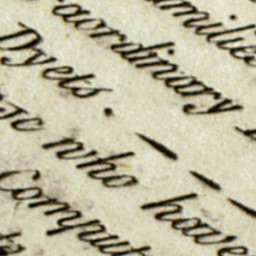 amilie
aordinary
Dyets. — — —
who have
Comput